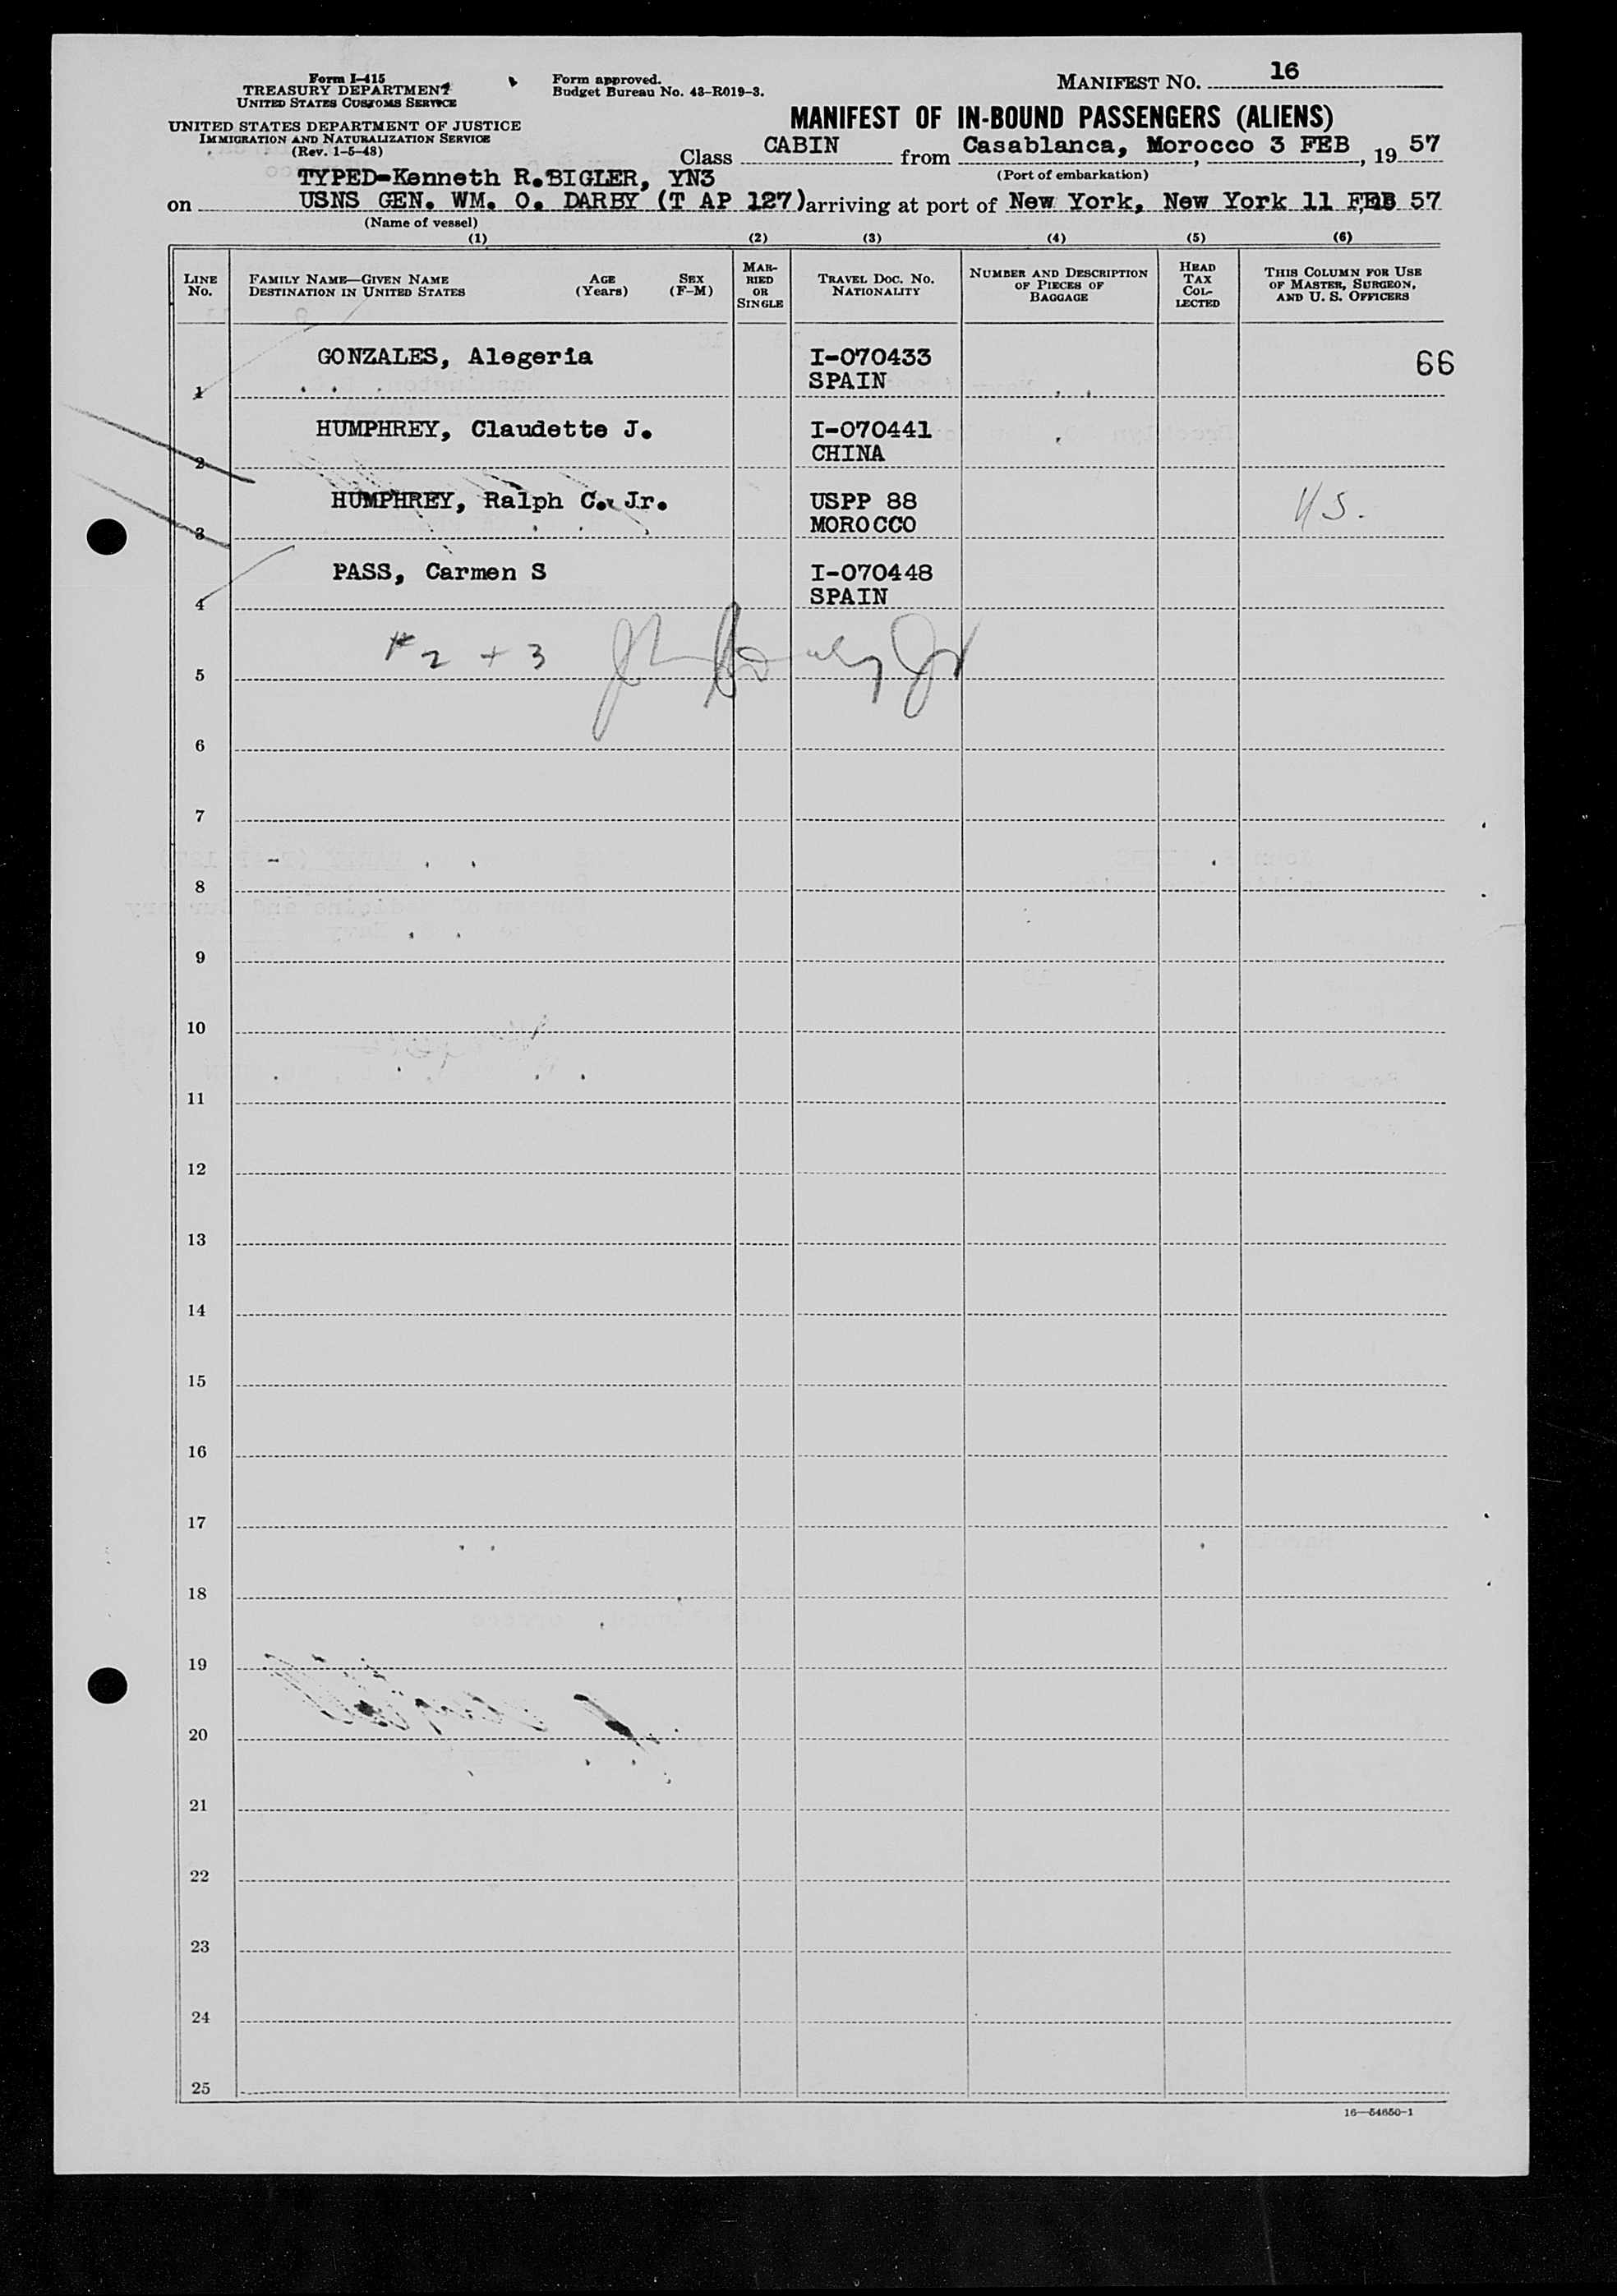 Form I-415
TREASURY DEPARTMENT
UNITED STATES CUSTOMS SERVICE
UNITED STATES DEPARTMENT OF JUSTICE
IMMIGRATION AND NATURALIZATION SERVICE
(Rev. 1-5-48)
Form approved.
Budget Bureau No. 43-R019-3.
MANIFEST NO. 16
MANIFEST OF IN-BOUND PASSENGERS (ALIENS)
Class CABIN from Casablanca, Morocco 3 FEB, 19 57
(Port of embarkation)
TYPED-Kenneth R.BIGLER, YN3
on USNS GEN. WM. O. DARBY (T AP 127) arriving at port of New York, New York 11 FEB 57
(Name of vessel)
(1) (2) (3) (4) (5) (6)
LINE No.
FAMILY NAME—GIVEN NAME
DESTINATION IN UNITED STATES
AGE (Years)
SEX (F-M)
MAR-
RIED
OR
SINGLE
TRAVEL DOC. NO.
NATIONALITY
NUMBER AND DESCRIPTION
OF PIECES OF
BAGGAGE
HEAD
TAX
COL-
LECTED
THIS COLUMN FOR USE
OF MASTER, SURGEON,
AND U. S. OFFICERS
GONZALES, Alegeria I-070433 66
1 SPAIN
HUMPHREY, Claudette J. I-070441
2 CHINA
HUMPHREY, Ralph C. Jr. USPP 88 US.
3 MOROCCO
PASS, Carmen S I-070448
4 SPAIN
# 2 + 3
5
6
7
8
9
10
11
12
13
14
15
16
17
18
19
20
21
22
23
24
25
16—54650-1